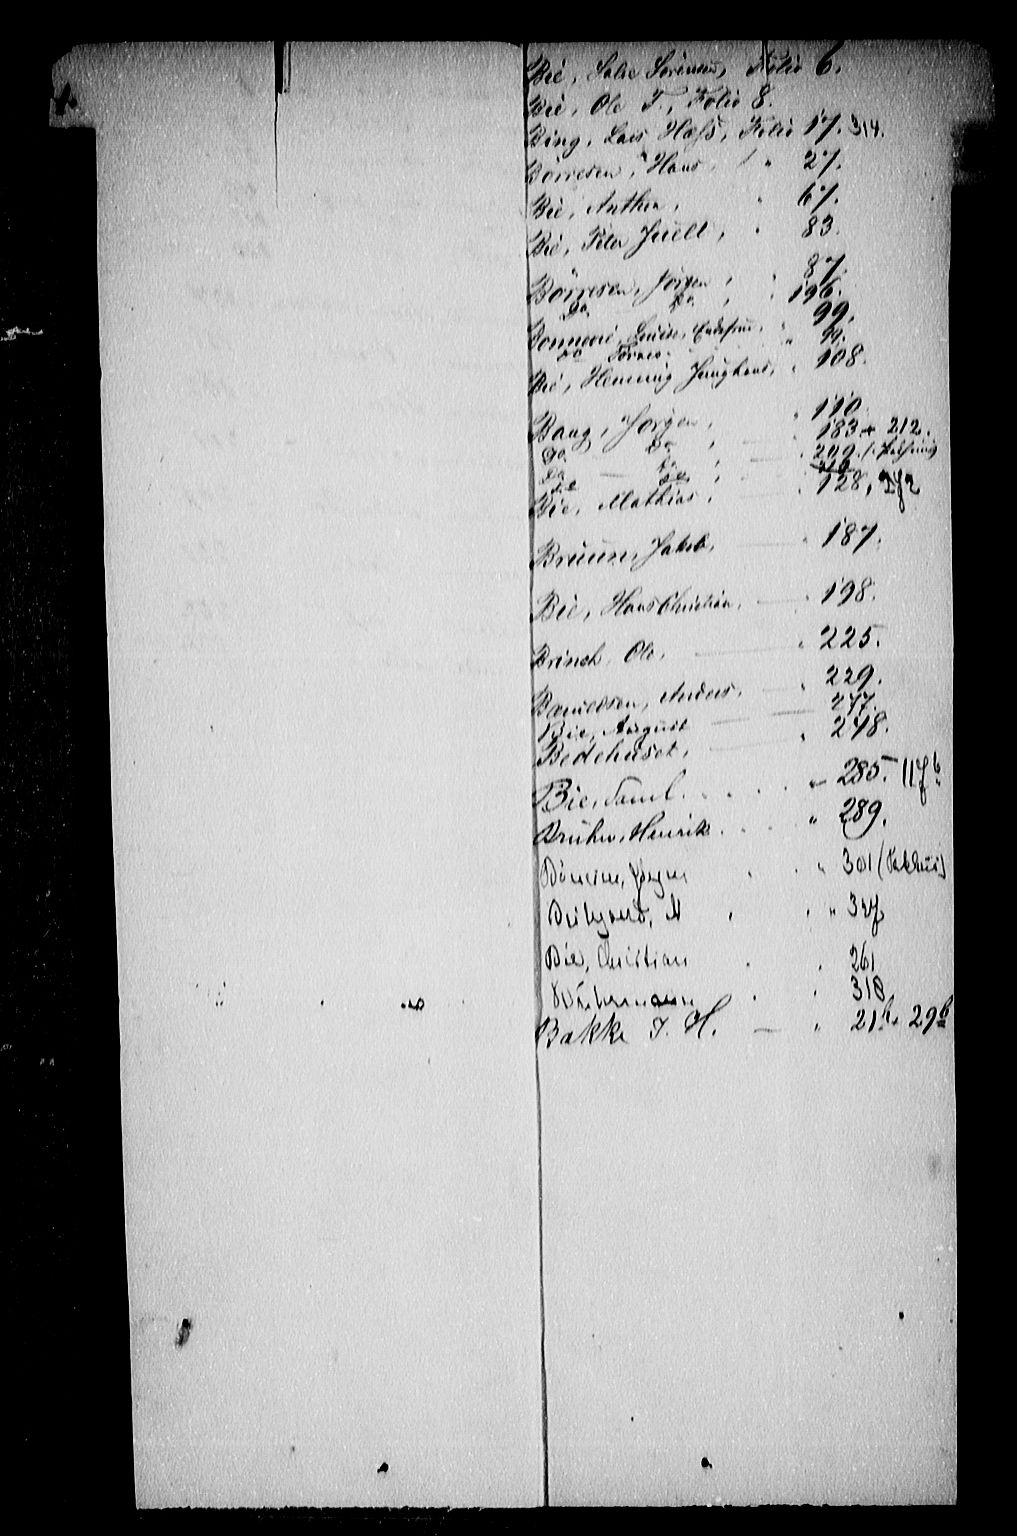 Bie, Salve Sörensen, Folio 6.
Bie, Ole T., Folio 8.
Bing, Lars Hess, Folio 17. 314.
Börresen, Hans, " " 27.
Bie, Anthon, " 67.
Bie, Peter Juell, " 83.
Börresen, Jörgen, " 87.
Do Do " 196.
Bonnevie, " 99.
Do " 99.
Bie, Henning Junghans, " 108.
Baag, Jörgen, " 110.
Do Do, 183 + 212.
Do — Do, 209.
Do Do
Bie, Mathias, " 128, 272
Bruun, Jakob, — " 187.
Bie, Hans Christian, — " 198.
Brinch, Ole, — " 225.
Anders, — " 229.
Bie, August — 277.
Bedehuset, — " 248.
Bie, Saml. " 285. 117b
Bruhn, Henrik " 289.
Jørgen " 301
N " 327
Bie, Christian " 261
" 318
Bakke J. H. — " 21b + 29b